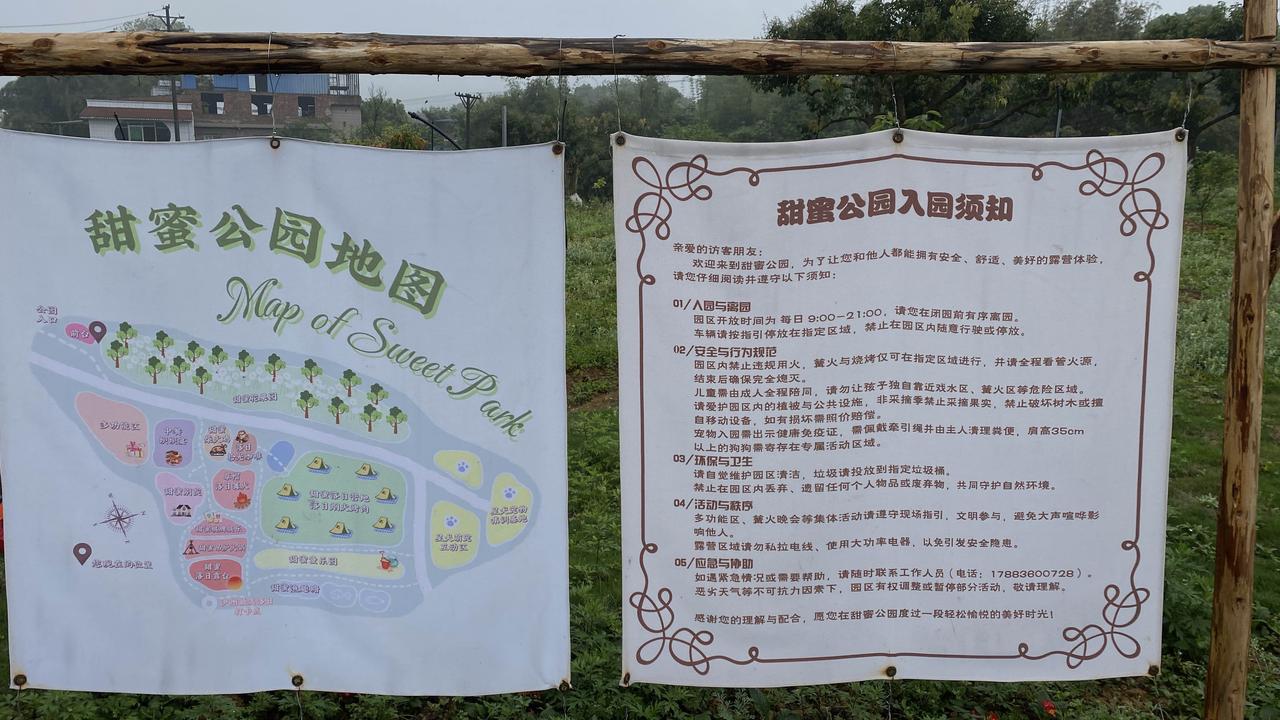 甜蜜公园地图
Map of Sweet Park
公园
入口
前台
甜蜜花果园
多功能区
落日营火
甜蜜别院
甜蜜落日营地
落日阳伞烧烤
星犬萌宠
互动区
甜蜜童乐园
甜蜜
落日露台
您现在的位置
打卡点
甜蜜公园入园须知
亲爱的访客朋友：
欢迎来到甜蜜公园，为了让您和他人都能拥有安全、舒适、美好的露营体验，
请您仔细阅读并遵守以下须知：
01/入园与离园
园区开放时间为 每日 9:00—21:00，请您在闭园前有序离园。
车辆请按指引停放在指定区域，禁止在园区内随意行驶或停放。
02/安全与行为规范
园区内禁止违规用火，篝火与烧烤仅可在指定区域进行，并请全程看管火源，
结束后确保完全熄灭。
儿童需由成人全程陪同，请勿让孩子独自靠近戏水区、篝火区等危险区域。
请爱护园区内的植被与公共设施，非采摘季禁止采摘果实，禁止破坏树木或擅
自移动设备，如有损坏需照价赔偿。
宠物入园需出示健康免疫证，需佩戴牵引绳并由主人清理粪便，肩高35cm
以上的狗狗需寄存在专属活动区域。
03/环保与卫生
请自觉维护园区清洁，垃圾请投放到指定垃圾桶。
禁止在园区内丢弃、遗留任何个人物品或废弃物，共同守护自然环境。
04/活动与秩序
多功能区、篝火晚会等集体活动请遵守现场指引，文明参与，避免大声喧哗影
响他人。
露营区域请勿私拉电线、使用大功率电器，以免引发安全隐患。
05/应急与协助
如遇紧急情况或需要帮助，请随时联系工作人员（电话：17883600728）。
恶劣天气等不可抗力因素下，园区有权调整或暂停部分活动，敬请理解。
感谢您的理解与配合，愿您在甜蜜公园度过一段轻松愉悦的美好时光！